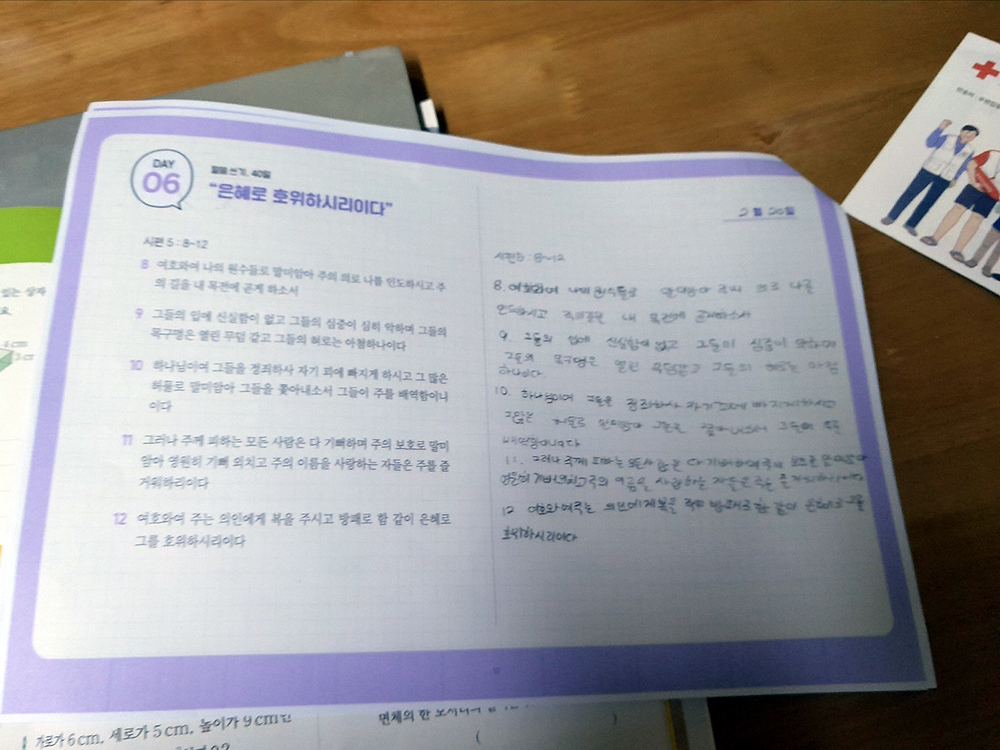 DAY
06
말씀 쓰기, 40일
"은혜로 호위하시리이다"
시편 5 : 8-12
8 여호와여 나의 원수들로 말미암아 주의 의로 나를 인도하시고 주
의 길을 내 목전에 곧게 하소서
9 그들의 입에 신실함이 없고 그들의 심중이 심히 악하며 그들의
목구멍은 열린 무덤 같고 그들의 혀로는 아첨하나이다
10 하나님이여 그들을 정죄하사 자기 꾀에 빠지게 하시고 그 많은
허물로 말미암아 그들을 쫓아내소서 그들이 주를 배역함이니
이다
11 그러나 주께 피하는 모든 사람은 다 기뻐하며 주의 보호로 말미
암아 영원히 기뻐 외치고 주의 이름을 사랑하는 자들은 주를 즐
거워하리이다
12 여호와여 주는 의인에게 복을 주시고 방패로 함 같이 은혜로
그를 호위하시리이다
2월 20일
시편5 : 8-12
8. 여호와여 나의 원수들로 말미암아 주의 의로 나를
인도하시고 주의길을 내 목전에 곧게하소서
9. 그들의 입에 신실함이 없고 그들이 심중이
그들의 목구멍은 열린 무덤같고 그들의 혀로는 아첨
하나이다
10. 하나님이여 그들을 정죄하사 자기꾀에 빠지게하시고
그많은 허물로 말미암아 그들을 쫓아내소서 그들이 주를
배역함이니이다
11. 그러나 주께 피하는 모든사람은 다 기뻐하며주의 보호로 말미암아
영원히 기뻐외치고주의 이름을 사랑하는 자들은 주를 즐거워하리이다
12 여호와여주는 의인에게복을 방패로 함 같이 은혜로 그를
호위하시리이다
4 cm
가로가 6 cm, 세로가 5 cm, 높이가 9 cm인
면체의 한 모서리의